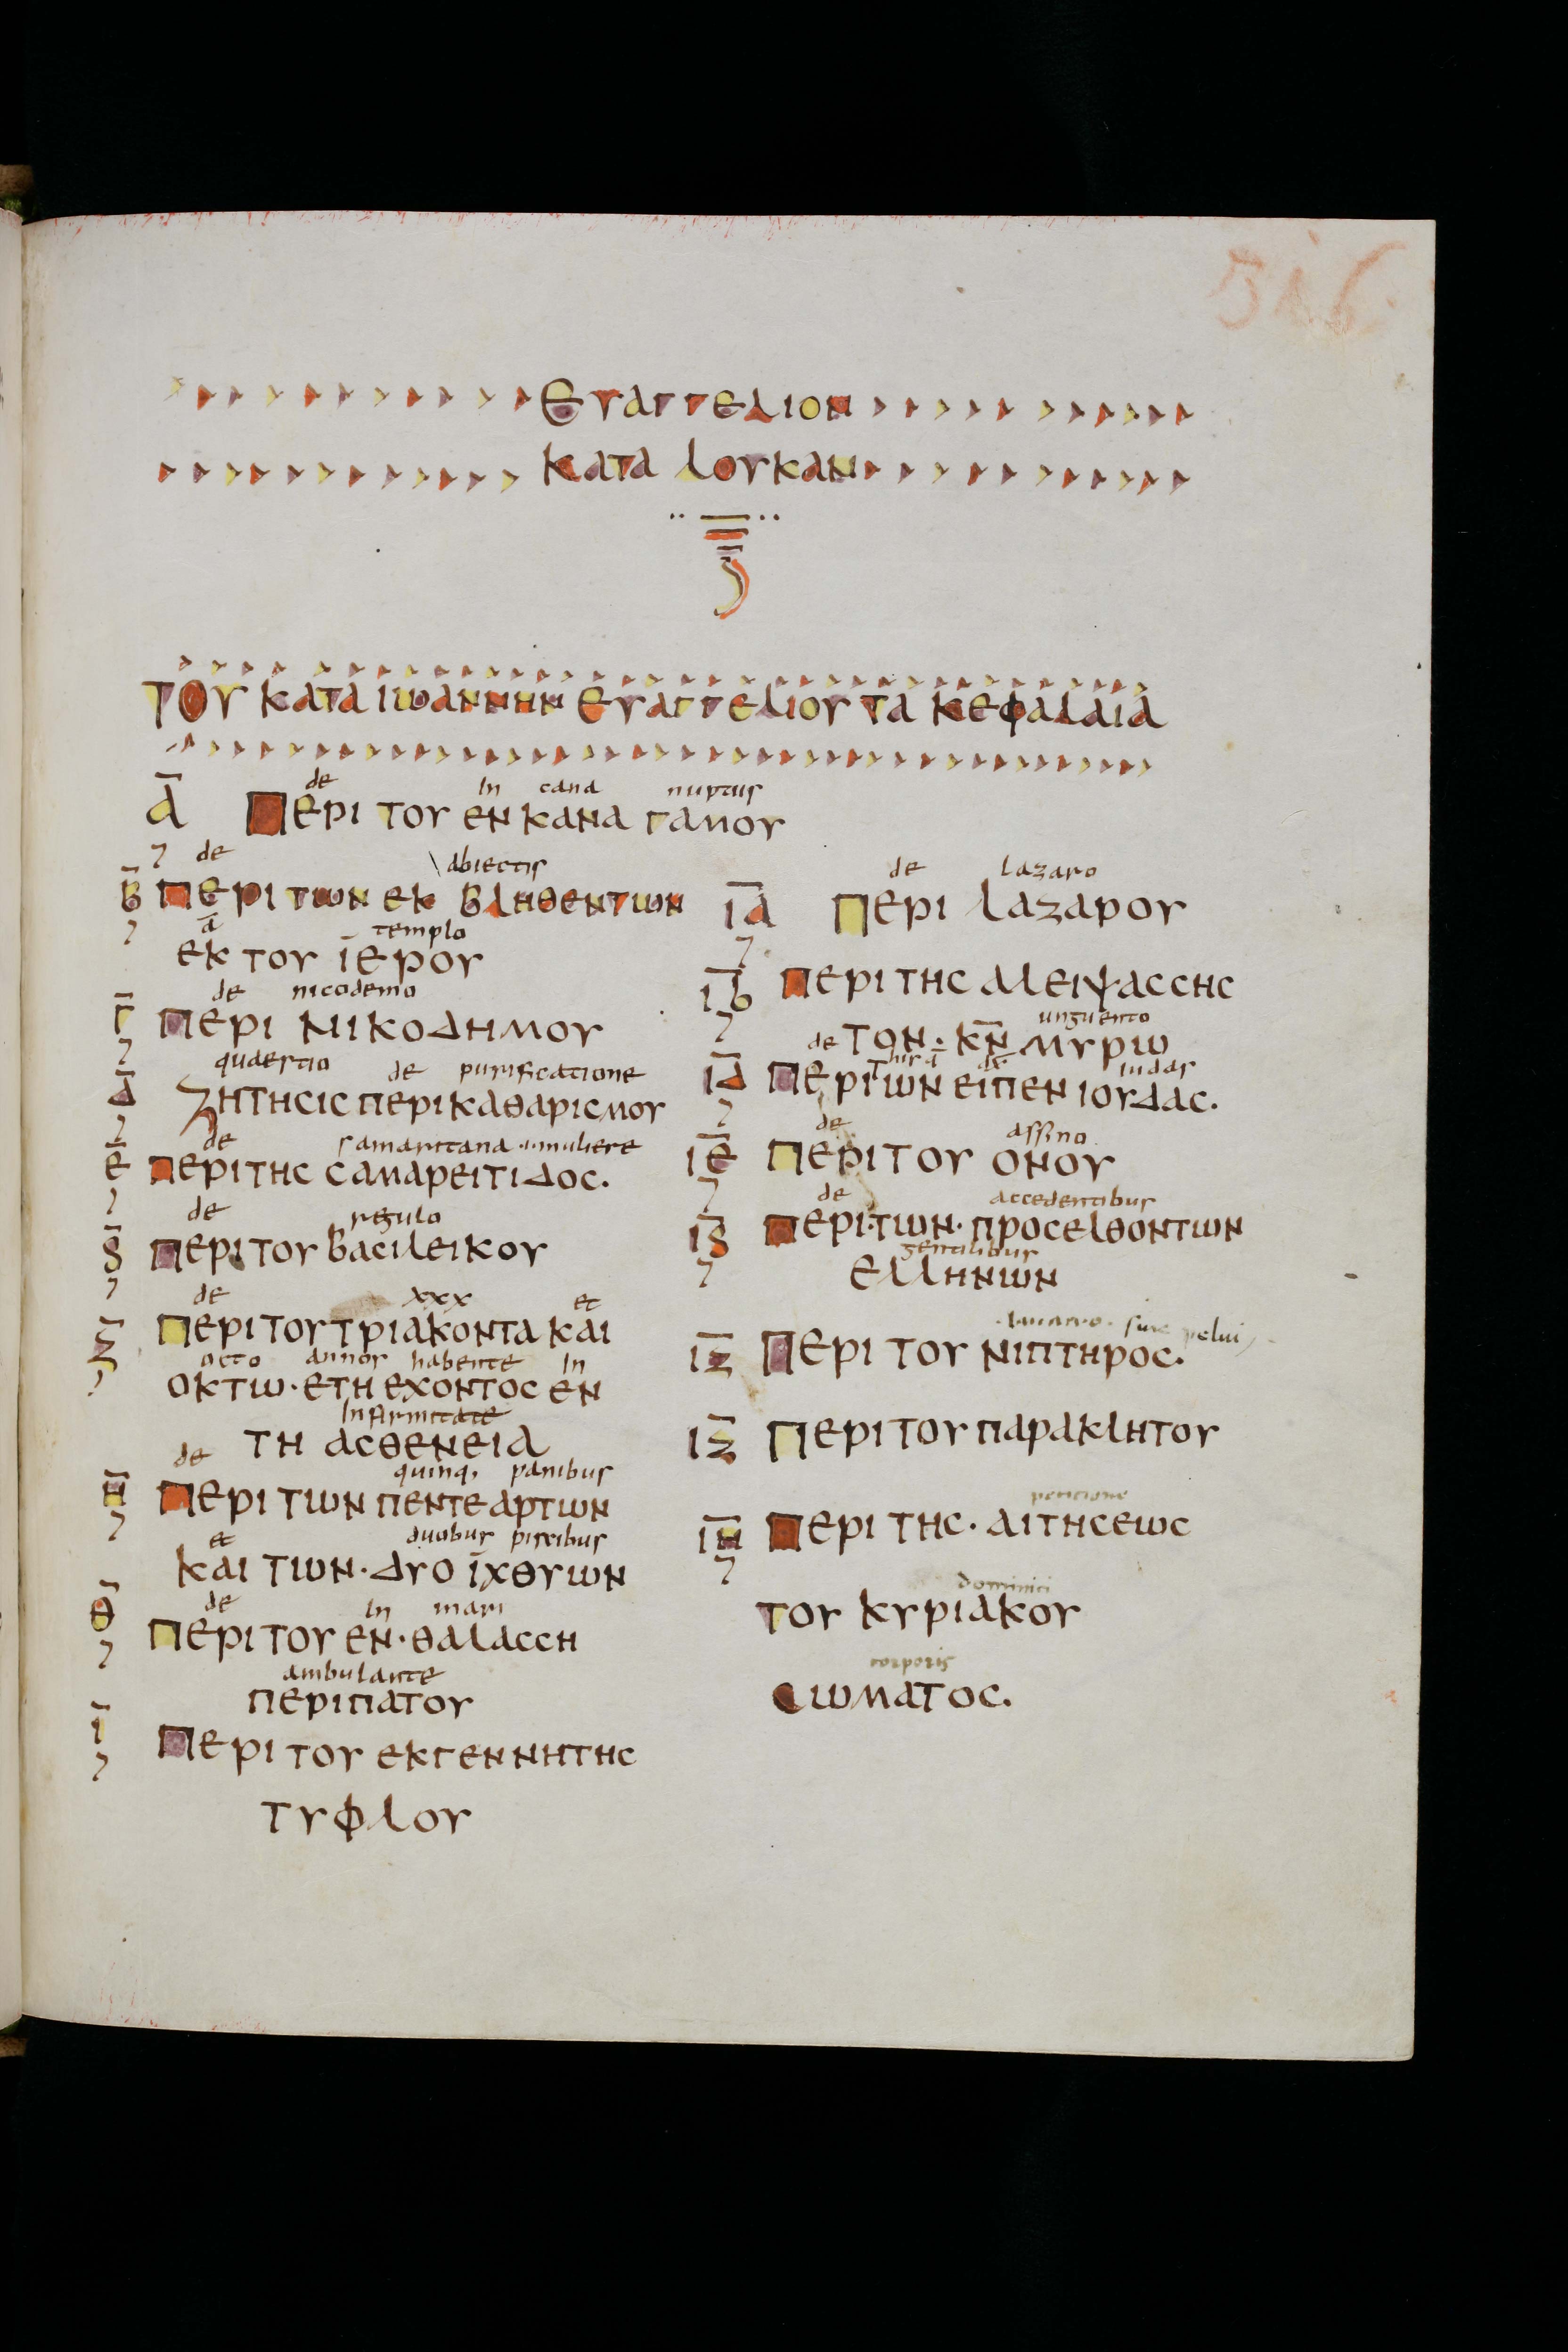 316
ΕΥΑΓΓΕΛΙΟΝ
ΚΑΤΑ ΛΟΥΚΑΝ
ΤΟΥ ΚΑΤΑ ΙΩΑΝΝΗΝ ΕΥΑΓΓΕΛΙΟΥ ΤΑ ΚΕΦΑΛΑΙΑ
de In cana nuptiis
Α̅ ΠΕΡΙ ΤΟΥ ΕΝ ΚΑΝΑ ΓΑΜΟΥ
de abiectis
Β̅ ΠΕΡΙ ΤΩΝ ΕΚ ΒΛΗΘΕΝΤΩΝ
a templo
ΕΚ ΤΟΥ ΙΕΡΟΥ
de nicodemo
Γ̅ ΠΕΡΙ ΝΙΚΟΔΗΜΟΥ
quaestio de purificatione
Δ̅ ΖΗΤΗСΙС ΠΕΡΙ ΚΑΘΑΡΙСΜΟΥ
de samaritana muliere
Ε̅ ΠΕΡΙ ΤΗС СΑΜΑΡΕΙΤΙΔΟС.
de regulo
Ϛ̅ ΠΕΡΙ ΤΟΥ ΒΑСΙΛΕΙΚΟΥ
de xxx et
Ζ̅ ΠΕΡΙ ΤΟΥ ΤΡΙΑΚΟΝΤΑ ΚΑΙ
octo annos habente In
ΟΚΤΩ · ΕΤΗ ΕΧΟΝΤΟС ΕΝ
Infirmitate
ΤΗ ΑСΘΕΝΕΙΑ
de quinq; panibus
Η̅ ΠΕΡΙ ΤΩΝ ΠΕΝΤΕ ΑΡΤΩΝ
et duobus piscibus
ΚΑΙ ΤΩΝ · ΔΥΟ ΙΧΘΥΩΝ
de In mari
Θ̅ ΠΕΡΙ ΤΟΥ ΕΝ · ΘΑΛΑССΗ
ambulante
ΠΕΡΙΠΑΤΟΥ
Ι̅ ΠΕΡΙ ΤΟΥ ΕΚ ΓΕΝΝΗΤΗС
ΤΥΦΛΟΥ
de lazaro
ΙΑ̅ ΠΕΡΙ ΛΑΖΑΡΟΥ
ΙΒ̅ ΠΕΡΙ ΤΗС ΑΛΕΙΨΑССΗС
unguento
ΤΟΝ · ΚΝ̅ ΜΥΡΩ
de iudas
ΙΔ̅ ΠΕΡΙ ΤΩΝ ΕΙΠΕΝ ΙΟΥΔΑС.
de assino
ΙΕ̅ ΠΕΡΙ ΤΟΥ ΟΝΟΥ
de accedentibus
ΙϚ̅ ΠΕΡΙ · ΤΩΝ · ΠΡΟСΕΛΘΟΝΤΩΝ
gentilibus
ΕΛΛΗΝΩΝ
pelui
ΙΖ̅ ΠΕΡΙ ΤΟΥ ΝΙΠΤΗΡΟС.
ΙΖ̅ ΠΕΡΙ ΤΟΥ ΠΑΡΑΚΛΗΤΟΥ
peticione
ΙΗ̅ ΠΕΡΙ ΤΗС · ΑΙΤΗСΕΩС
dominici
ΤΟΥ ΚΥΡΙΑΚΟΥ
corporis
СΩΜΑΤΟС.